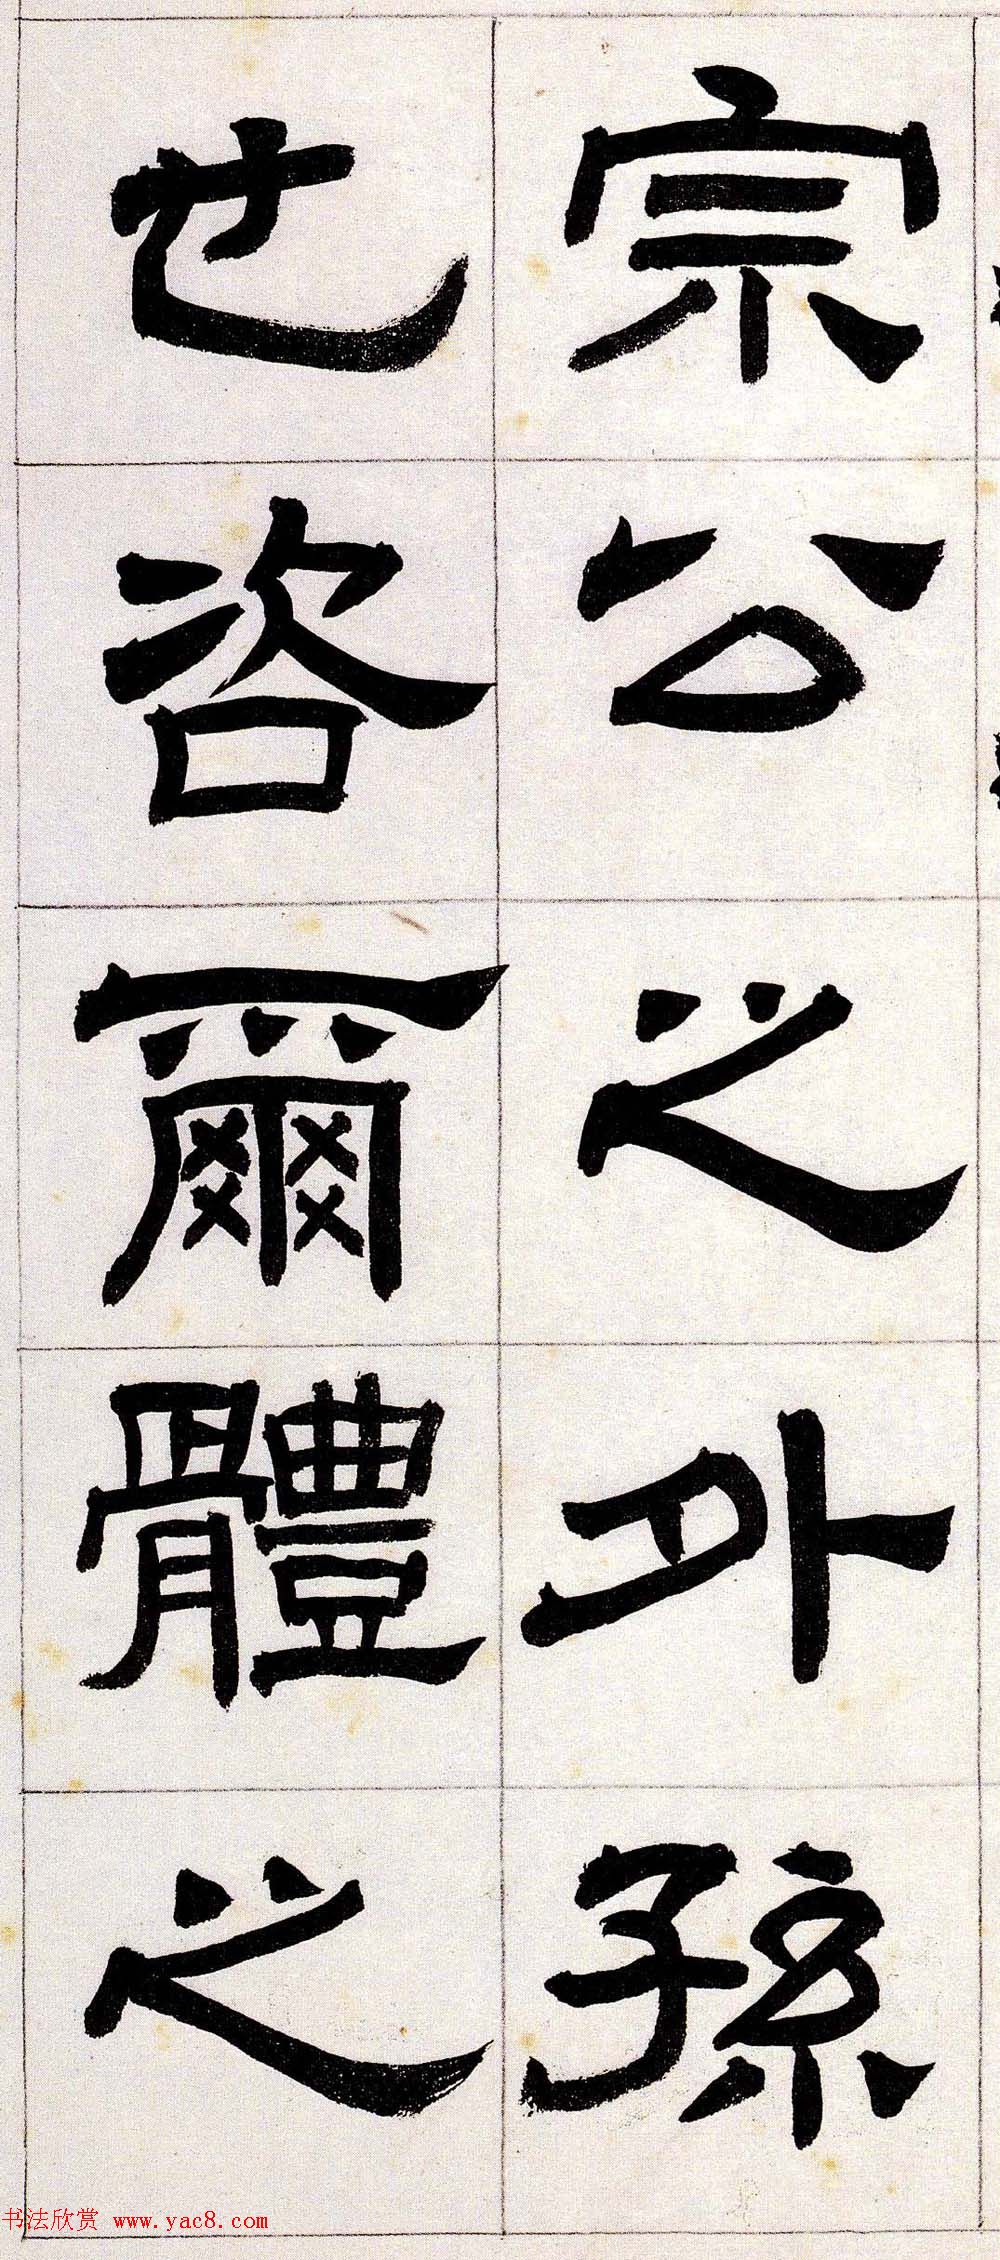 宗公之外孫
也咨爾體之
书法欣赏 www.yac8.com